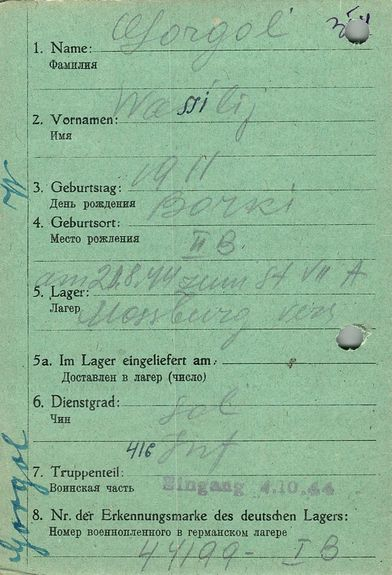 Gorgol
1. Name:
Фамилия
Wassilij
2. Vornamen:
Имя
1911
3. Geburtstag:
День рождения
Borki
4. Geburtsort:
Место рождения
II B.
am 21.8.44 zum St VII A
5. Lager:
Лагер
Moosburg vers
5a. Im Lager eingeliefert am:
Доставлен в лагер (число)
6. Dienstgrad:
Чин
Sol
416 Inf
7. Truppenteil:
Воинская часть
Eingang 4.10.44
8. Nr. der Erkennungsmarke des deutschen Lagers:
Номер военнопленного в германском лагере
44199 - I B
Gorgol W